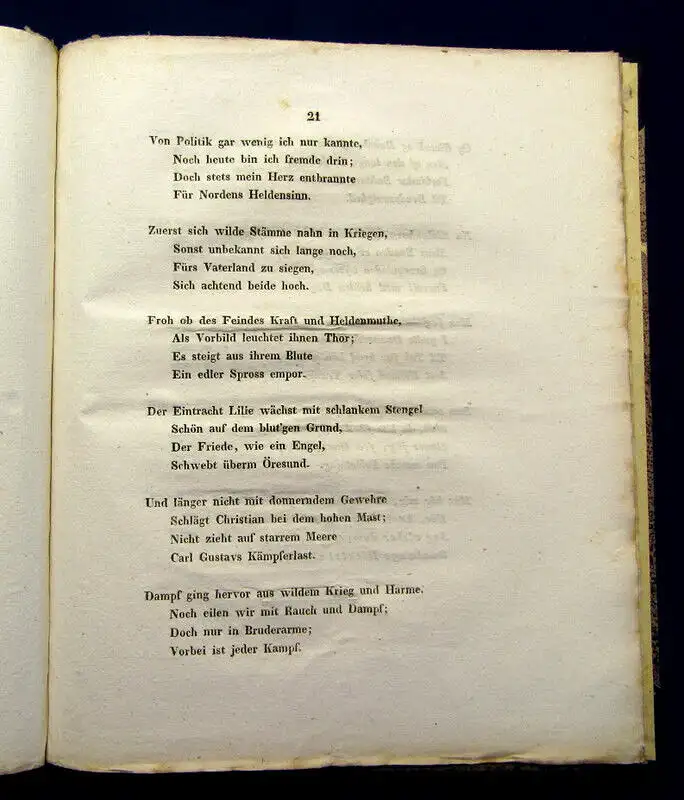 21
Von Politik gar wenig ich nur kannte,
Noch heute bin ich fremde drin;
Doch stets mein Herz entbrannte
Für Nordens Heldensinn.
Zuerst sich wilde Stämme nahn in Kriegen,
Sonst unbekannt sich lange noch,
Fürs Vaterland zu siegen,
Sich achtend beide hoch.
Froh ob des Feindes Kraft und Heldenmuthe,
Als Vorbild leuchtet ihnen Thor;
Es steigt aus ihrem Blute
Ein edler Spross empor.
Der Eintracht Lilie wächst mit schlankem Stengel
Schön auf dem blut'gen Grund,
Der Friede, wie ein Engel,
Schwebt überm Öresund.
Und länger nicht mit donnerndem Gewehre
Schlägt Christian bei dem hohen Mast;
Nicht zieht auf starrem Meere
Carl Gustavs Kämpferlast.
Dampf ging hervor aus wildem Krieg und Harme.
Noch eilen wir mit Rauch und Dampf;
Doch nur in Bruderarme;
Vorbei ist jeder Kampf.